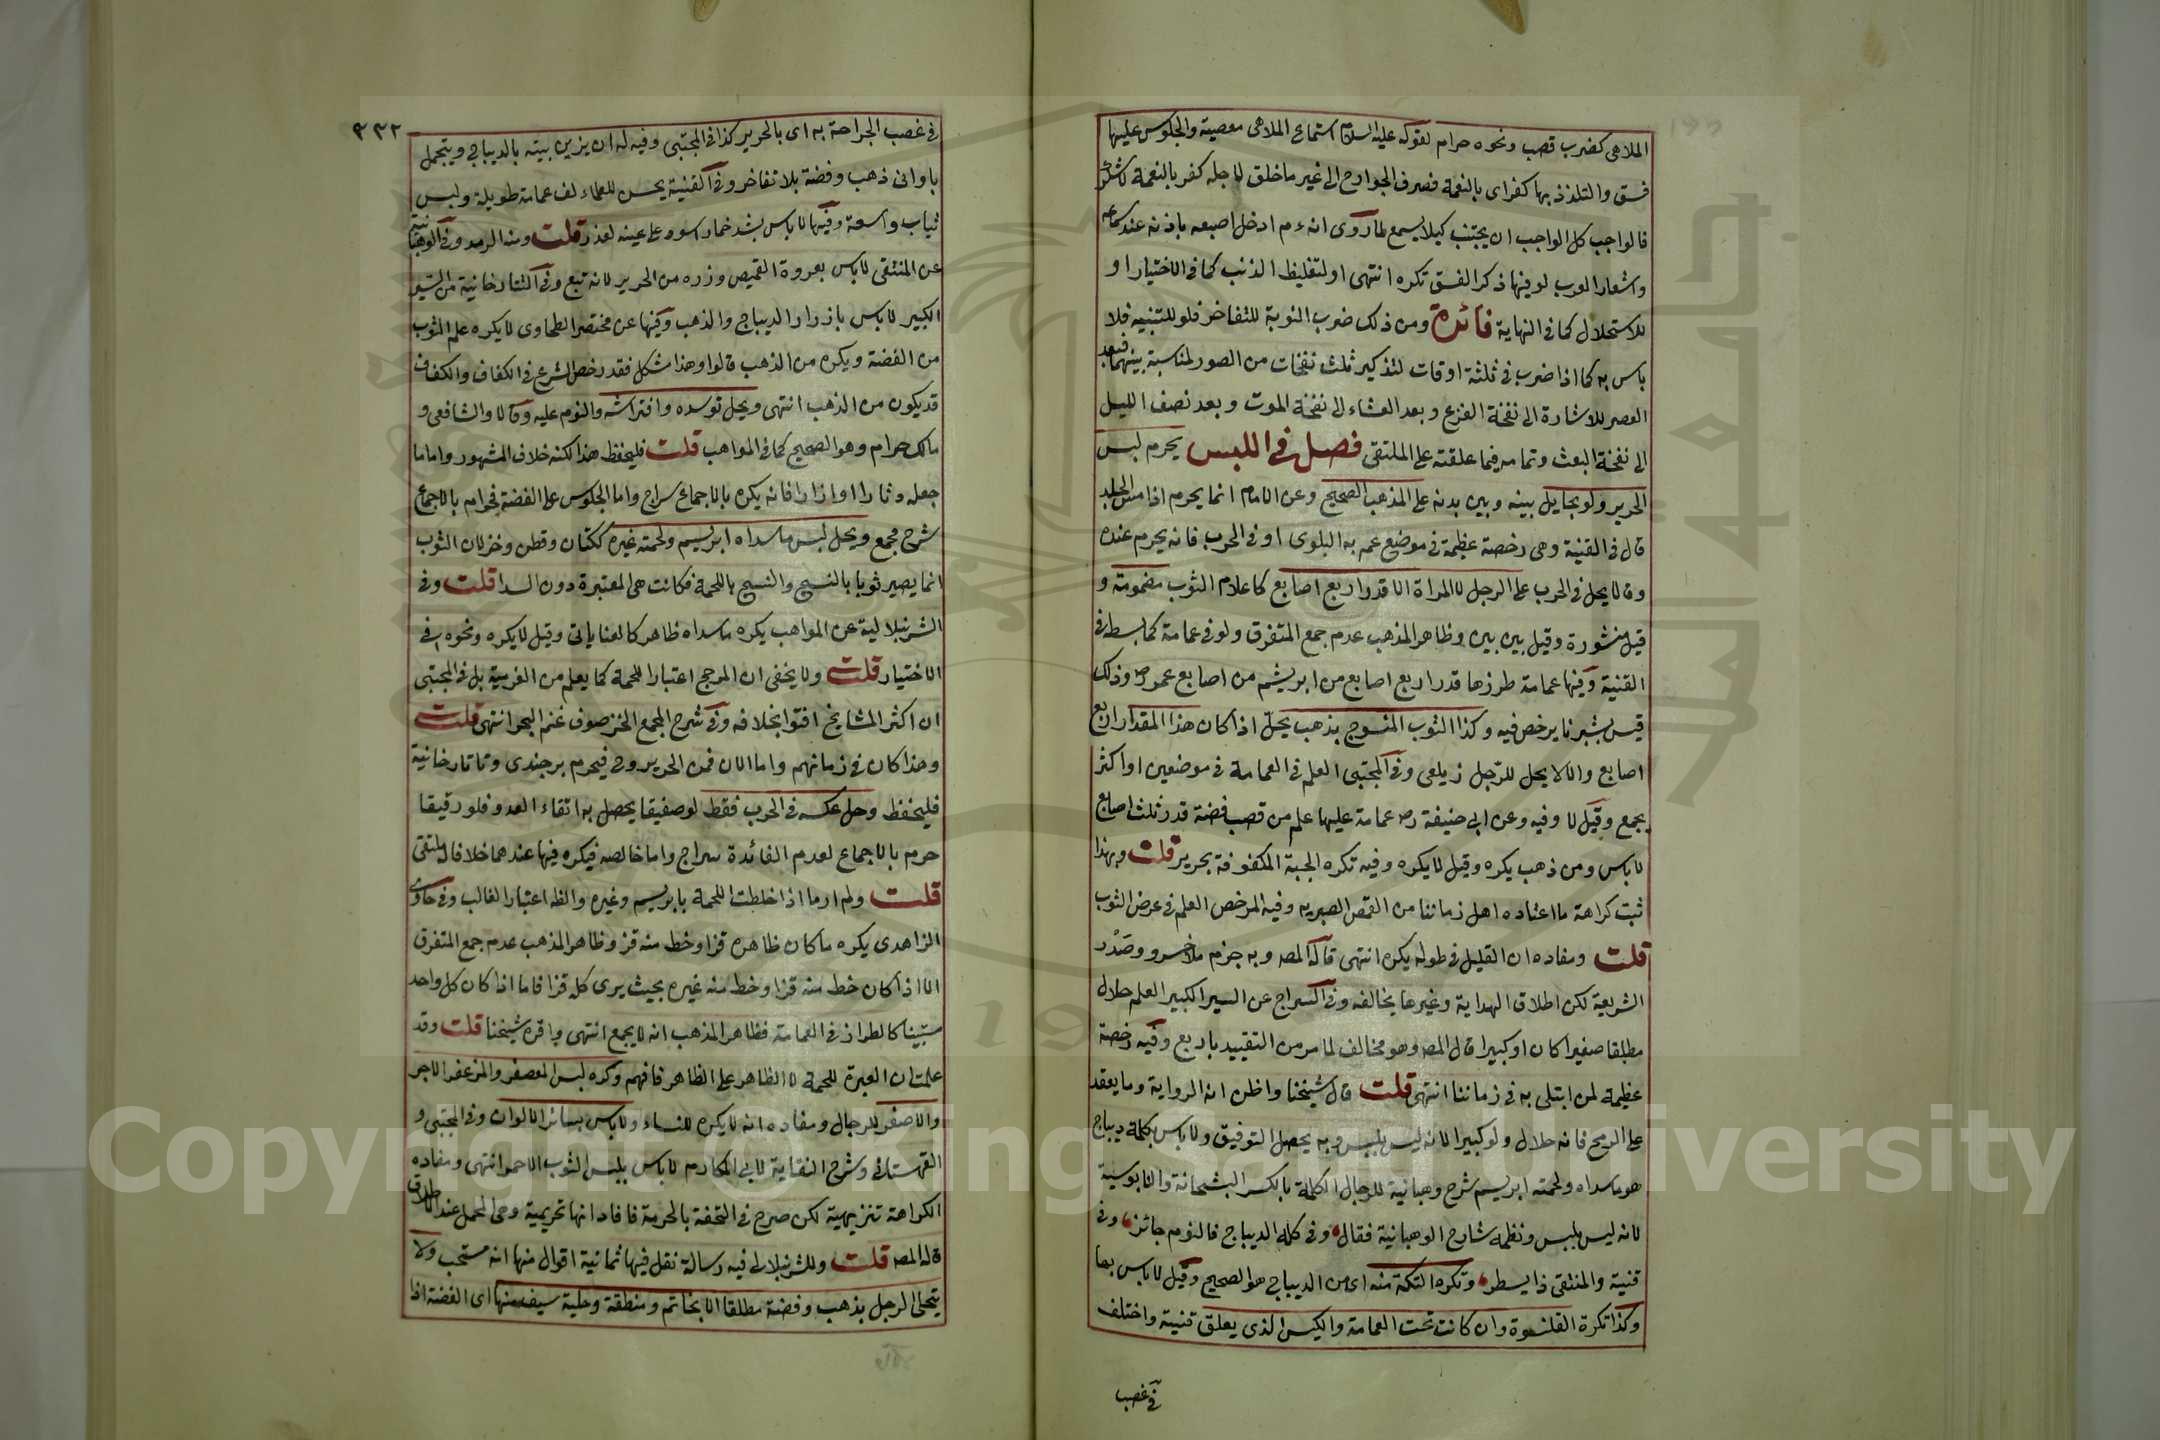 الملاهى كضرب قصب ونحوه حرام لقوله عليه السلام استماع الملاهى معصية والجلوس عليها
فسق والتلذذ بها كفر اى بالنعمة فصرف الجوارح الى غير ما خلق لاجله كفر بالنعمة لا شكر
فالواجب كل الواجب ان يجتنب كيلا يسمع لما روى انه ءم ادخل اصبعه باذنه عند سماعه
واشعار العرب لو فيها ذكر الفسق تكره انتهى او لتغليظ الذنب كما فى الاختيار او
للاستحلال كما فى النهاية فائدة ومن ذلك ضرب النوبة للتفاخر فلو للتنبيه فلا
باس به كما اذا ضرب فى ثلثة اوقات لتذكير ثلث نفخات من الصور لمناسبة بينهما فبعد
العصر للاشارة الى نفخة الفزع وبعد العشاء الى نفخة الموت وبعد نصف الليل
الى نفخة البعث وتمامه فيما علقته على الملتقى فصل فى اللبس يحرم لبس
الحرير ولو بحايل بينه وبين بدنه على المذهب الصحيح وعن الامام انما يحرم اذا مس الجلد
قال فى القنية وهى رخصة عظيمة فى موضع عم به البلوى او فى الحرب فانه يحرم عنده
وقالا يحل فى الحرب على الرجل لا المراة الا قدر اربع اصابع كاعلام الثوب مضمومة و
قيل منشورة وقيل بين بين وظاهر المذهب عدم جمع المتفرق ولو فى عمامة كما بسط فى
القنية وفيها عمامة طرزها قدر اربع اصابع من ابريشم من اصابع عمر رض وذلك
قيس بشبرنا يرخص فيه وكذا الثوب المنسوج بذهب يحل اذا كان هذا المقدار اربع
اصابع والا لا يحل للرجل زيلعى وفى المجتبى العلم فى العمامة فى موضعين او اكثر
يجمع وقيل لا وفيه وعن ابى حنيفة رح عمامة عليها علم من قصب فضة قدر ثلث اصابع
لا باس ومن ذهب يكره وقيل لا يكره وفيه تكره الجبة المكفوفة بحرير قلت وبهذا
ثبت كراهة ما اعتاده اهل زماننا من القمص البصرية وفيه المرخص العلم فى عرض الثوب
قلت ومفاده ان القليل فى طوله يكره انتهى قاله المص وبه جزم ملا خسرو وصدر
الشريعة لكن اطلاق الهداية وغيرها يخالفه وفى السراج عن السير الكبير العلم حلال
مطلقا صغيرا كان او كبيرا قال المص وهو مخالف لما مر من التقييد باربع وفيه رخصة
عظيمة لمن ابتلى به فى زماننا انتهى قلت قال شيخنا واظن انه الرواية وما يعقد
على الرمح فانه حلال ولو كبيرا لانه ليس بلبس وبه يحصل التوفيق ولا باس بكلة ديباج
هو ما سداه ولحمته ابريسم شرح وهبانية للرجال الكلة بالكسر البشخانة والناموسية
لانه ليس بلبس ونظمه شارح الوهبانية فقال وفى كلة الديباج فالنوم جائز وفى
قنية والمنتقى ذا يسطر وتكره التكة منه اى من الديباج هو الصحيح وقيل لا باس بها
وكذا تكره القلنسوة وان كانت تحت العمامة والكيس الذى يعلق قنية واختلف
فى عصب
٣٣٢
فى عصب الجراحة به اى بالحرير كذا فى المجتبى وفيه له ان يزين بيته بالديباج ويتجمل
باوانى ذهب وفضة بلا تفاخر وفى القنية يحسن للعلماء لف عمامة طويلة ولبس
ثياب واسعة وفيها لا باس بشد خمار اسود على عينه لعذر قلت ومنه الرمد وفى الوهبانية
عن المنتقى لا باس بعروة القميص وزره من الحرير لانه تبع وفى التتارخانية من السير
الكبير لا باس بازرار الديباج والذهب وفيها عن مختصر الطحاوى لا يكره علم الثوب
من الفضة ويكره من الذهب قالوا وهذا مشكل فقد رخص الشرع فى الكفاف والكفاف
قد يكون من الذهب انتهى ويحل توسده وافتراشه والنوم عليه وقالا والشافعى و
مالك حرام وهو الصحيح كما فى المواهب قلت فليحفظ هذا لكنه خلاف المشهور واما ما
جعله دثارا او ازارا فانه يكره بالاجماع سراج واما الجلوس على الفضة فحرام بالاجماع
شرح مجمع ويحل لبس ما سداه ابريسم ولحمته غيره ككتان وقطن وخز لان الثوب
انما يصير ثوبا بالنسج والنسج باللحمة فكانت هى المعتبرة دون السدا قلت وفى
الشرنبلالية عن المواهب يكره ما سداه ظاهر كالعتابى وقيل لا يكره ونحوه فى
الاختيار قلت ولا يخفى ان المرجح اعتبار اللحمة كما يعلم من العزمية بل فى المجتبى
ان اكثر المشايخ افتوا بخلافه وفى شرح المجمع الخز صوف غنم البحر انتهى قلت
وهذا كان فى زمانهم واما الان فمن الحرير وفى فيحرم برجندى وتاتارخانية
فليحفظ وحل عكسه فى الحرب فقط لو صفيقا يحصل به اتقاء العدو فلو رقيقا
حرم بالاجماع لعدم الفائدة سراج واما خالصه فيكره فيها عندهما خلافا له ملتقى
قلت ولم ار ما اذا خلطت اللحمة بابريسم وغيره والظ اعتبار الغالب وفى حاوى
الزاهدى يكره ما كان ظاهره قزا وخط منه قز وظاهر المذهب عدم جمع المتفرق
الا اذا كان خط منه قزا وخط منه غيره بحيث يرى كله قزا فاما اذا كان كل واحد
مستبينا كالطراز فى العمامة فظاهر المذهب انه لا يجمع انتهى واقره شيخنا قلت وقد
علمت ان العبرة للحمة لا الظاهر على الظاهر فافهم وكره لبس المعصفر والمزعفر الاحمر
والاصفر للرجال ومفاده انه لا يكره للنساء ولا باس بسائر الالوان وفى المجتبى و
القهستانى وشرح النقاية لابى المكارم لا باس بلبس الثوب الاحمر انتهى ومفاده
الكراهة تنزيهية لكن صرح فى التحفة بالحرمة فافاد انها تحريمية وهى المحمل عند الاطلاق
قاله المص قلت وللشرنبلالى فيه رسالة نقل فيها ثمانية اقوال منها انه مستحب ولا
يتحلى الرجل بذهب وفضة مطلقا الا بخاتم ومنطقة وحلية سيف منها اى الفضة اذا
Copyright © King Saud University